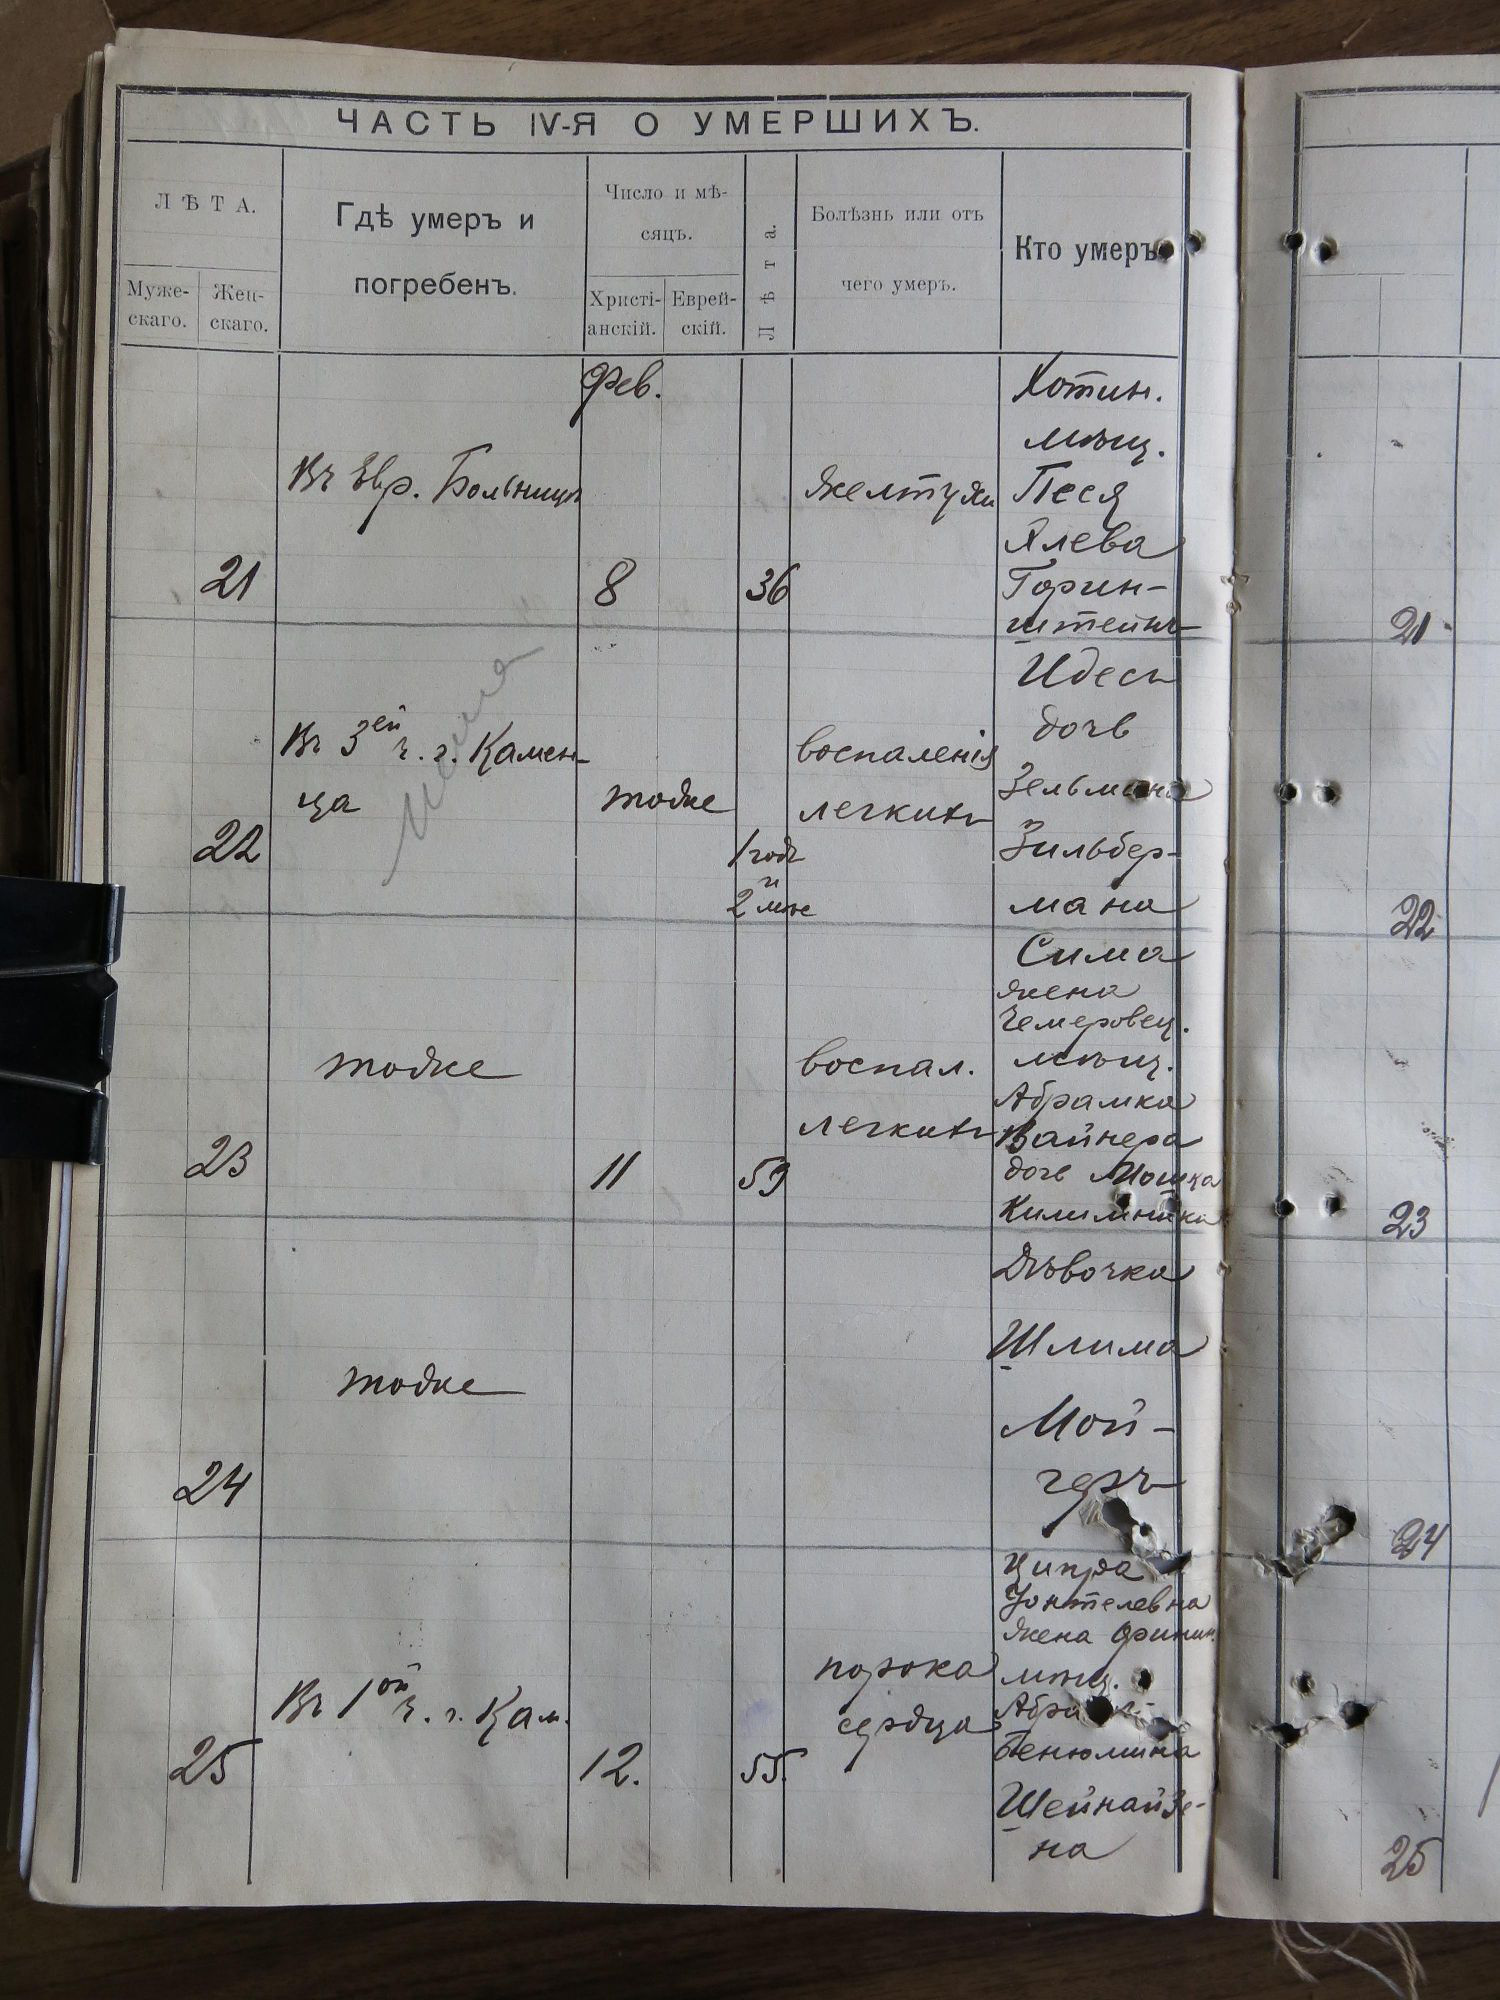 ЧАСТЬ IV-Я О УМЕРШИХЪ.
ЛѢТА.
Муже-
скаго.
Жен-
скаго.
Гдѣ умеръ и
погребенъ.
Число и мѣ-
сяцъ.
Христі-
анскій.
Еврей-
скій.
Лѣта.
Болѣзнь или отъ
чего умеръ.
Кто умеръ
21
Въ Евр. Больницѣ
Фев.
8
36
желтухи
Хотин.
мѣщ.
Песя
Алева
Горин-
штейнъ
22
Въ 3ей ч. г. Камен-
ца
тоже
1 годъ
и
2 мѣс
воспаленія
легкихъ
Идесъ
дочь
Зельмана
Зильбер-
мана
23
тоже
11
59
воспал.
легкихъ
Сима
жена
Чемеровец.
мѣщ.
Абрамка
Вайнера
дочь Мошка
Килимника
24
тоже
Дѣвочка
Шлима
Мой-
геръ
25
Въ 1ой ч. г. Кам.
12.
55.
порока
сердца
Ципра
Уонтелевна
жена
мѣщ.
Бенюмина
Шейнайзе-
на
21
22
23
24
25